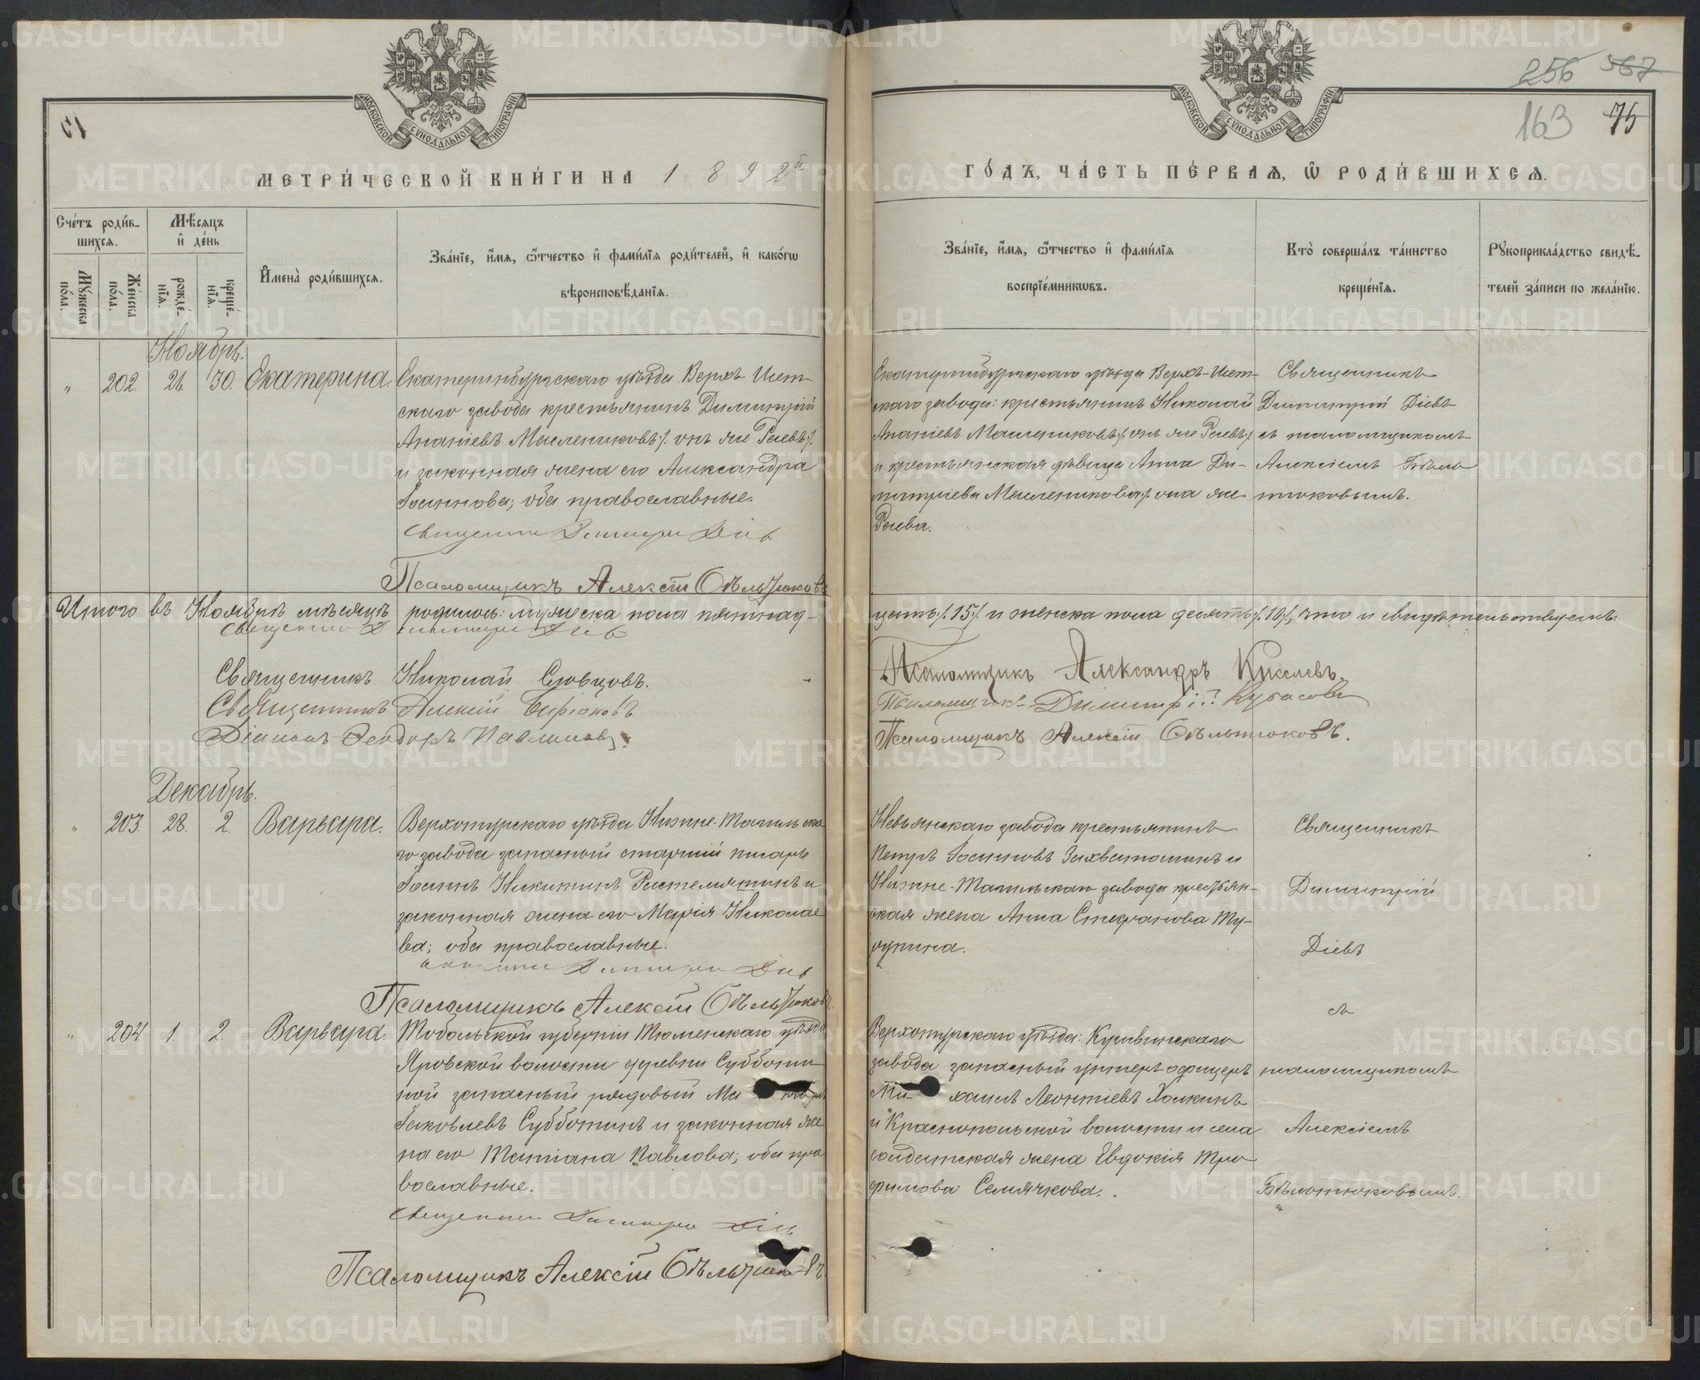 256 567
163 75
МОСКОВСКОЙ СѴНОДАЛЬНОЙ ТИПОГРАФІИ
МОСКОВСКОЙ СѴНОДАЛЬНОЙ ТИПОГРАФІИ
МЕТРИ́ЧЕСКОЙ КНИ́ГИ НА 1892й
ГО́ДЪ, ЧА́СТЬ ПЕ́РВАѦ, Ѽ РОДИ́ВШИХСѦ.
Сче́тъ роди́вшихсѧ.
Мꙋ́жеска по́ла.
Же́нска по́ла.
Мѣ́сѧцъ и҆ де́нь
рожде́нїѧ.
креще́нїѧ.
И҆мена̀ роди́вшихсѧ.
Зва́нїе, и҆́мѧ, ѻ҆́тчество и҆ фами́лїѧ роди́телей, и҆ како́гѡ
вѣроисповѣ́данїѧ.
Зва́нїе, и҆́мѧ, ѻ҆́тчество и҆ фами́лїѧ
воспрїе́мникѡвъ.
Кто̀ соверша́лъ та́инство
креще́нїѧ.
Рꙋкоприкла́дство свидѣ́-
телей за́писи по жела́нїю.
Ноябрь.
" 202 26 30 Екатерина.
Екатеринбургскаго уѣзда Верхъ-Исет-
скаго завода крестьянинъ Димитрій
Ананіевъ Маслениковъ /. онъ же Раевъ /.
и законная жена его Александра
Іоаннова; оба православные.
Священникъ Димитрій Діевъ
Псаломщикъ Алексій Бѣльтюковъ
Екатеринбургскаго уѣзда Верхъ-Исет-
скаго завода: крестьянинъ Николай
Ананіевъ Маслениковъ /. онъ же Раевъ /.
и крестьянская дѣвица Анна Ди-
митріева Масленикова /. она же
Раева.
Священникъ
Димитрій Діевъ
съ псаломщикомъ
Алексіемъ Бѣль-
тюковымъ.
Итого въ Ноябрѣ мѣсяцѣ родилось: мужеска пола пятнад-
цать /. 15 /. и женска пола десять /. 10 /, что и свидѣтельствуемъ:
Священникъ Димитрій Діевъ
Священникъ Николай Словцовъ.
Священникъ Алексій Бирюковъ
Діаконъ Ѳеодоръ Павлиновъ.
Псаломщикъ Александръ Киселевъ.
Псаломщикъ Димитрій Кубасовъ
Псаломщикъ Алексій Бѣльтюковъ.
Декабрь.
" 203 28. 2. Варвара.
Верхотурскаго уѣзда Нижне-Тагильска
го завода запасный старшій писарь
Іоаннъ Никитинъ Растелятинъ и
законная жена его Марія Николае
ва; оба православные.
Священникъ Димитрій Діевъ
Псаломщикъ Алексій Бѣльтюковъ
Невьянскаго завода крестьянинъ
Петръ Іоанновъ Захватошинъ и
Нижне-Тагильскаго завода крестьян-
ская жена Анна Стефанова Ту-
ругина.
Священникъ
Димитрій
Діевъ
съ
" 204 1. 2. Варвара.
Тобольской губерніи Тюменскаго уѣзда
Яровской волости деревни Субботи
ной запасный рядовый Ма
Іаковлевъ Субботинъ и законная же
на его Татіана Павлова; оба пра
вославные.
Священникъ Димитрій Діевъ
Псаломщикъ Алексій Бѣльтюковъ
Верхотурскаго уѣзда: Кушвинскаго
завода запасный унтеръ офицеръ
Ми хаилъ Леонтіевъ Холкинъ
и Краснопольской волости и села
солдатская жена Евдокія Тро
фимова Семячкова.
псаломщикомъ
Алексіемъ
Бѣльтюковымъ.
METRIKI.GASO-URAL.RU